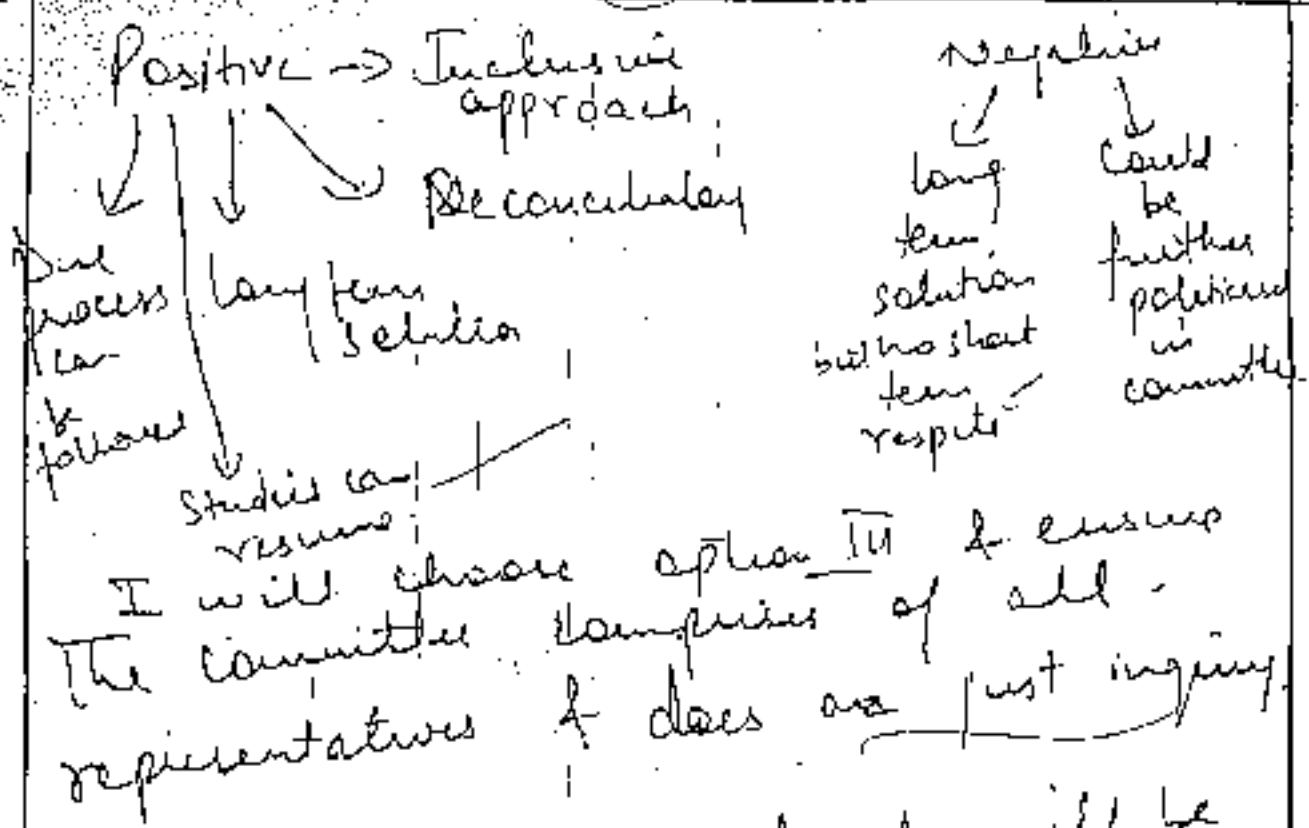 Positive → Inclusive
approach
Reconciliatory
Due
process
can
be
followed
Long term
solution
Studies can
resume.
Negative
long
term
solution
but no short
term
respite
Could
be
further
politicised
in
committee
I will choose option III & ensure
The committee comprises of all
representatives & does a just inquiry.
will be